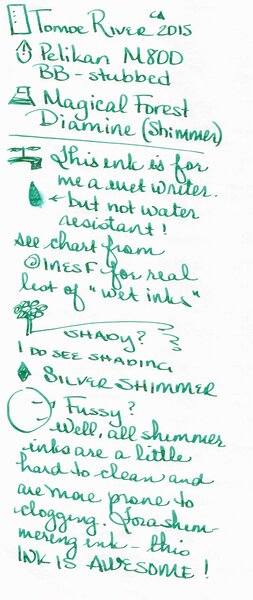 Tomoe River CA 2015
Pelikan M800
BB - stubbed
Magical Forest
Diamine (Shimmer)
This ink is for
me a wet writer.
← but not water
resistant!
see chart from
@INESF for real
list of "wet inks"
SHADY?
I DO SEE SHADING
SILVER SHIMMER
Fussy?
Well, all shimmer
inks are a little
hard to clean and
are more prone to
clogging. For a shim-
mering ink - this
INK IS AWESOME!